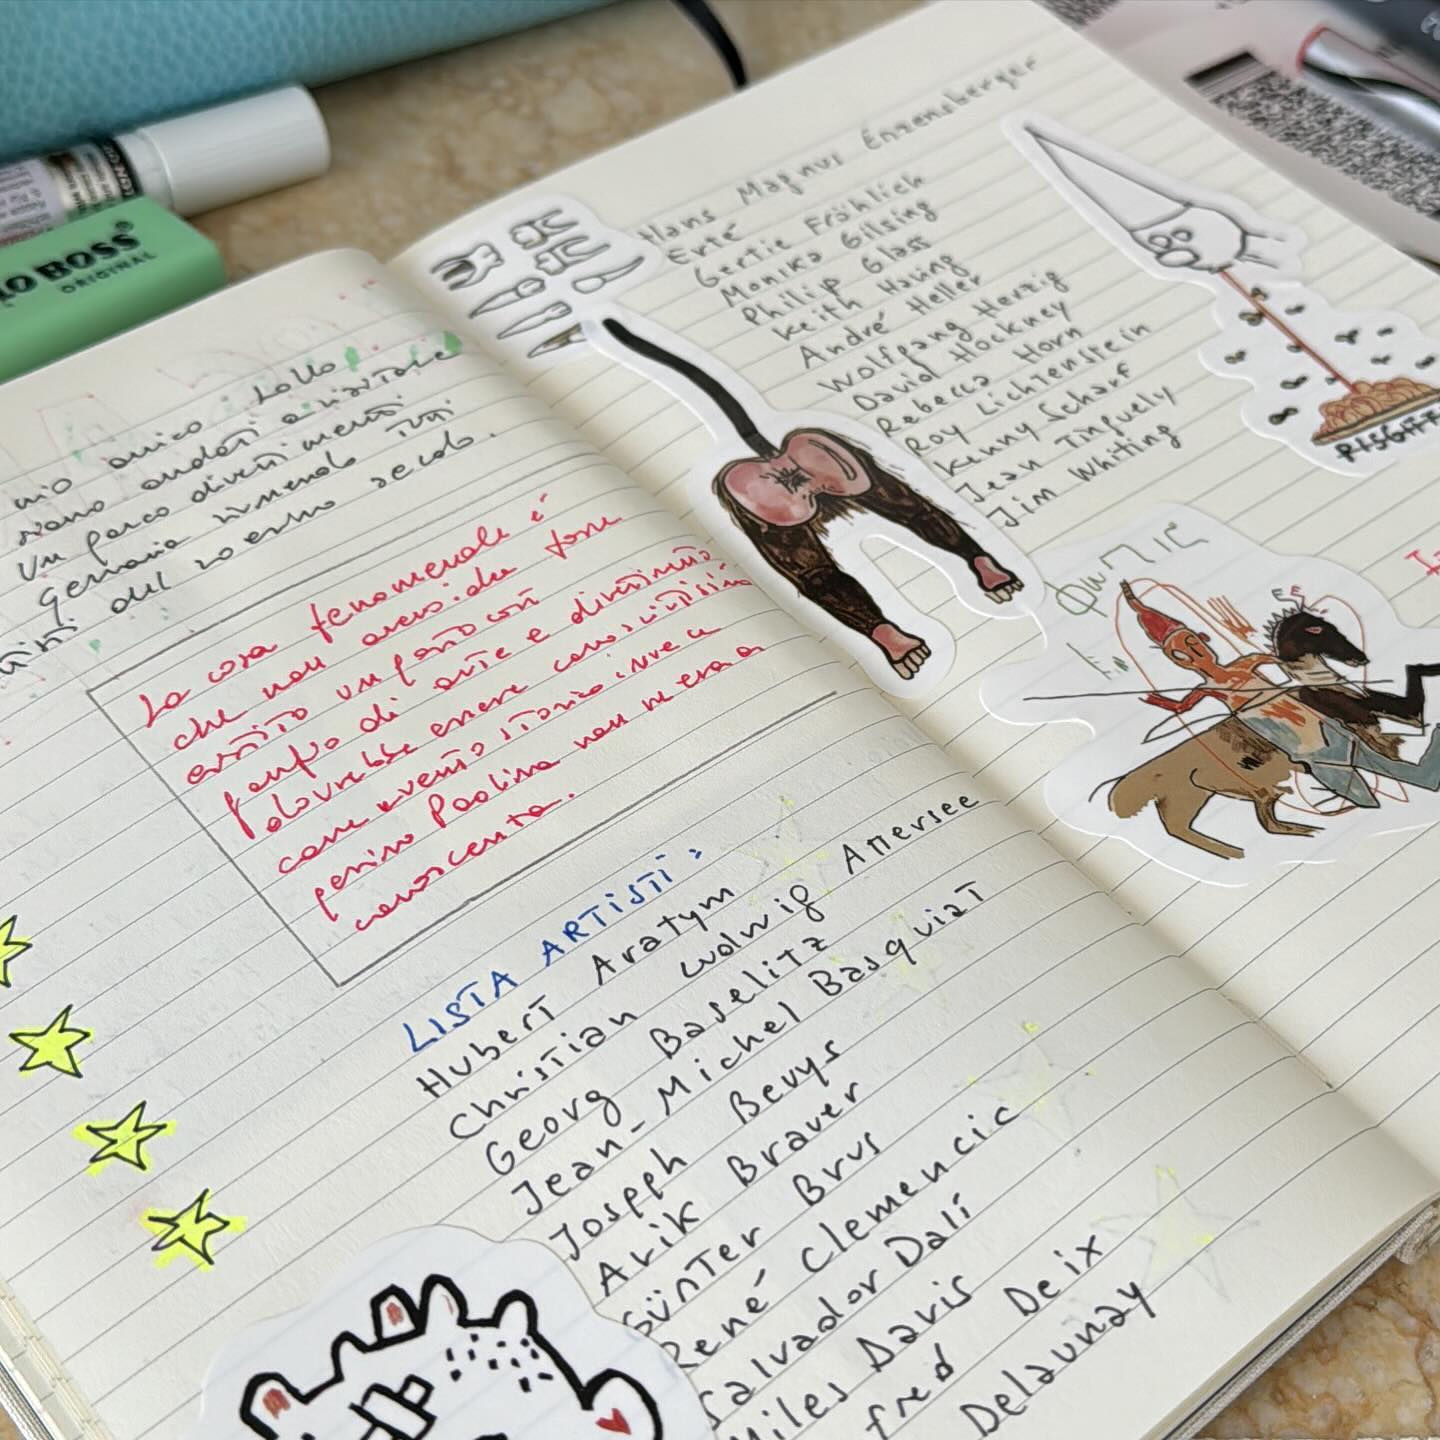 BOSS
ORIGINAL
mio amico Lollo
siano andati a visitare
un parco divertimenti
Germania risalendo ivi
del 20esimo secolo.
La cosa fenomenale è
che non avessi che forse
esistito un parco con
di arte e divertimento
dovrebbe essere conosciutissimo
come evento storico inve a
persino Paolina non ne era a
conoscenza.
LISTA ARTISTI:
Hubert Aratym
Christian Ludwig Attersee
Georg Baselitz
Jean-Michel Basquiat
Joseph Beuys
Arik Brauer
Günter Brus
René Clemencic
Salvador Dalí
Miles Davis
fred Deix
Delaunay
Hans Magnus Enzensberger
Erté
Gertie Fröhlich
Monika Gilsing
Philip Glass
Keith Haring
André Heller
Wolfgang Herzig
David Hockney
Rebecca Horn
Roy Lichtenstein
Kenny Scharf
Jean Tinguely
Jim Whiting